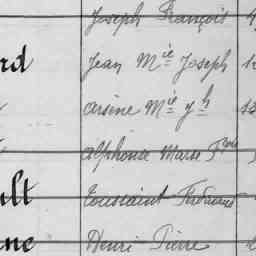 Joseph François
rd Jean Mie Joseph
Arsène Mie
Alphonse Marie
ult Toussaint
ne Henri Pierre